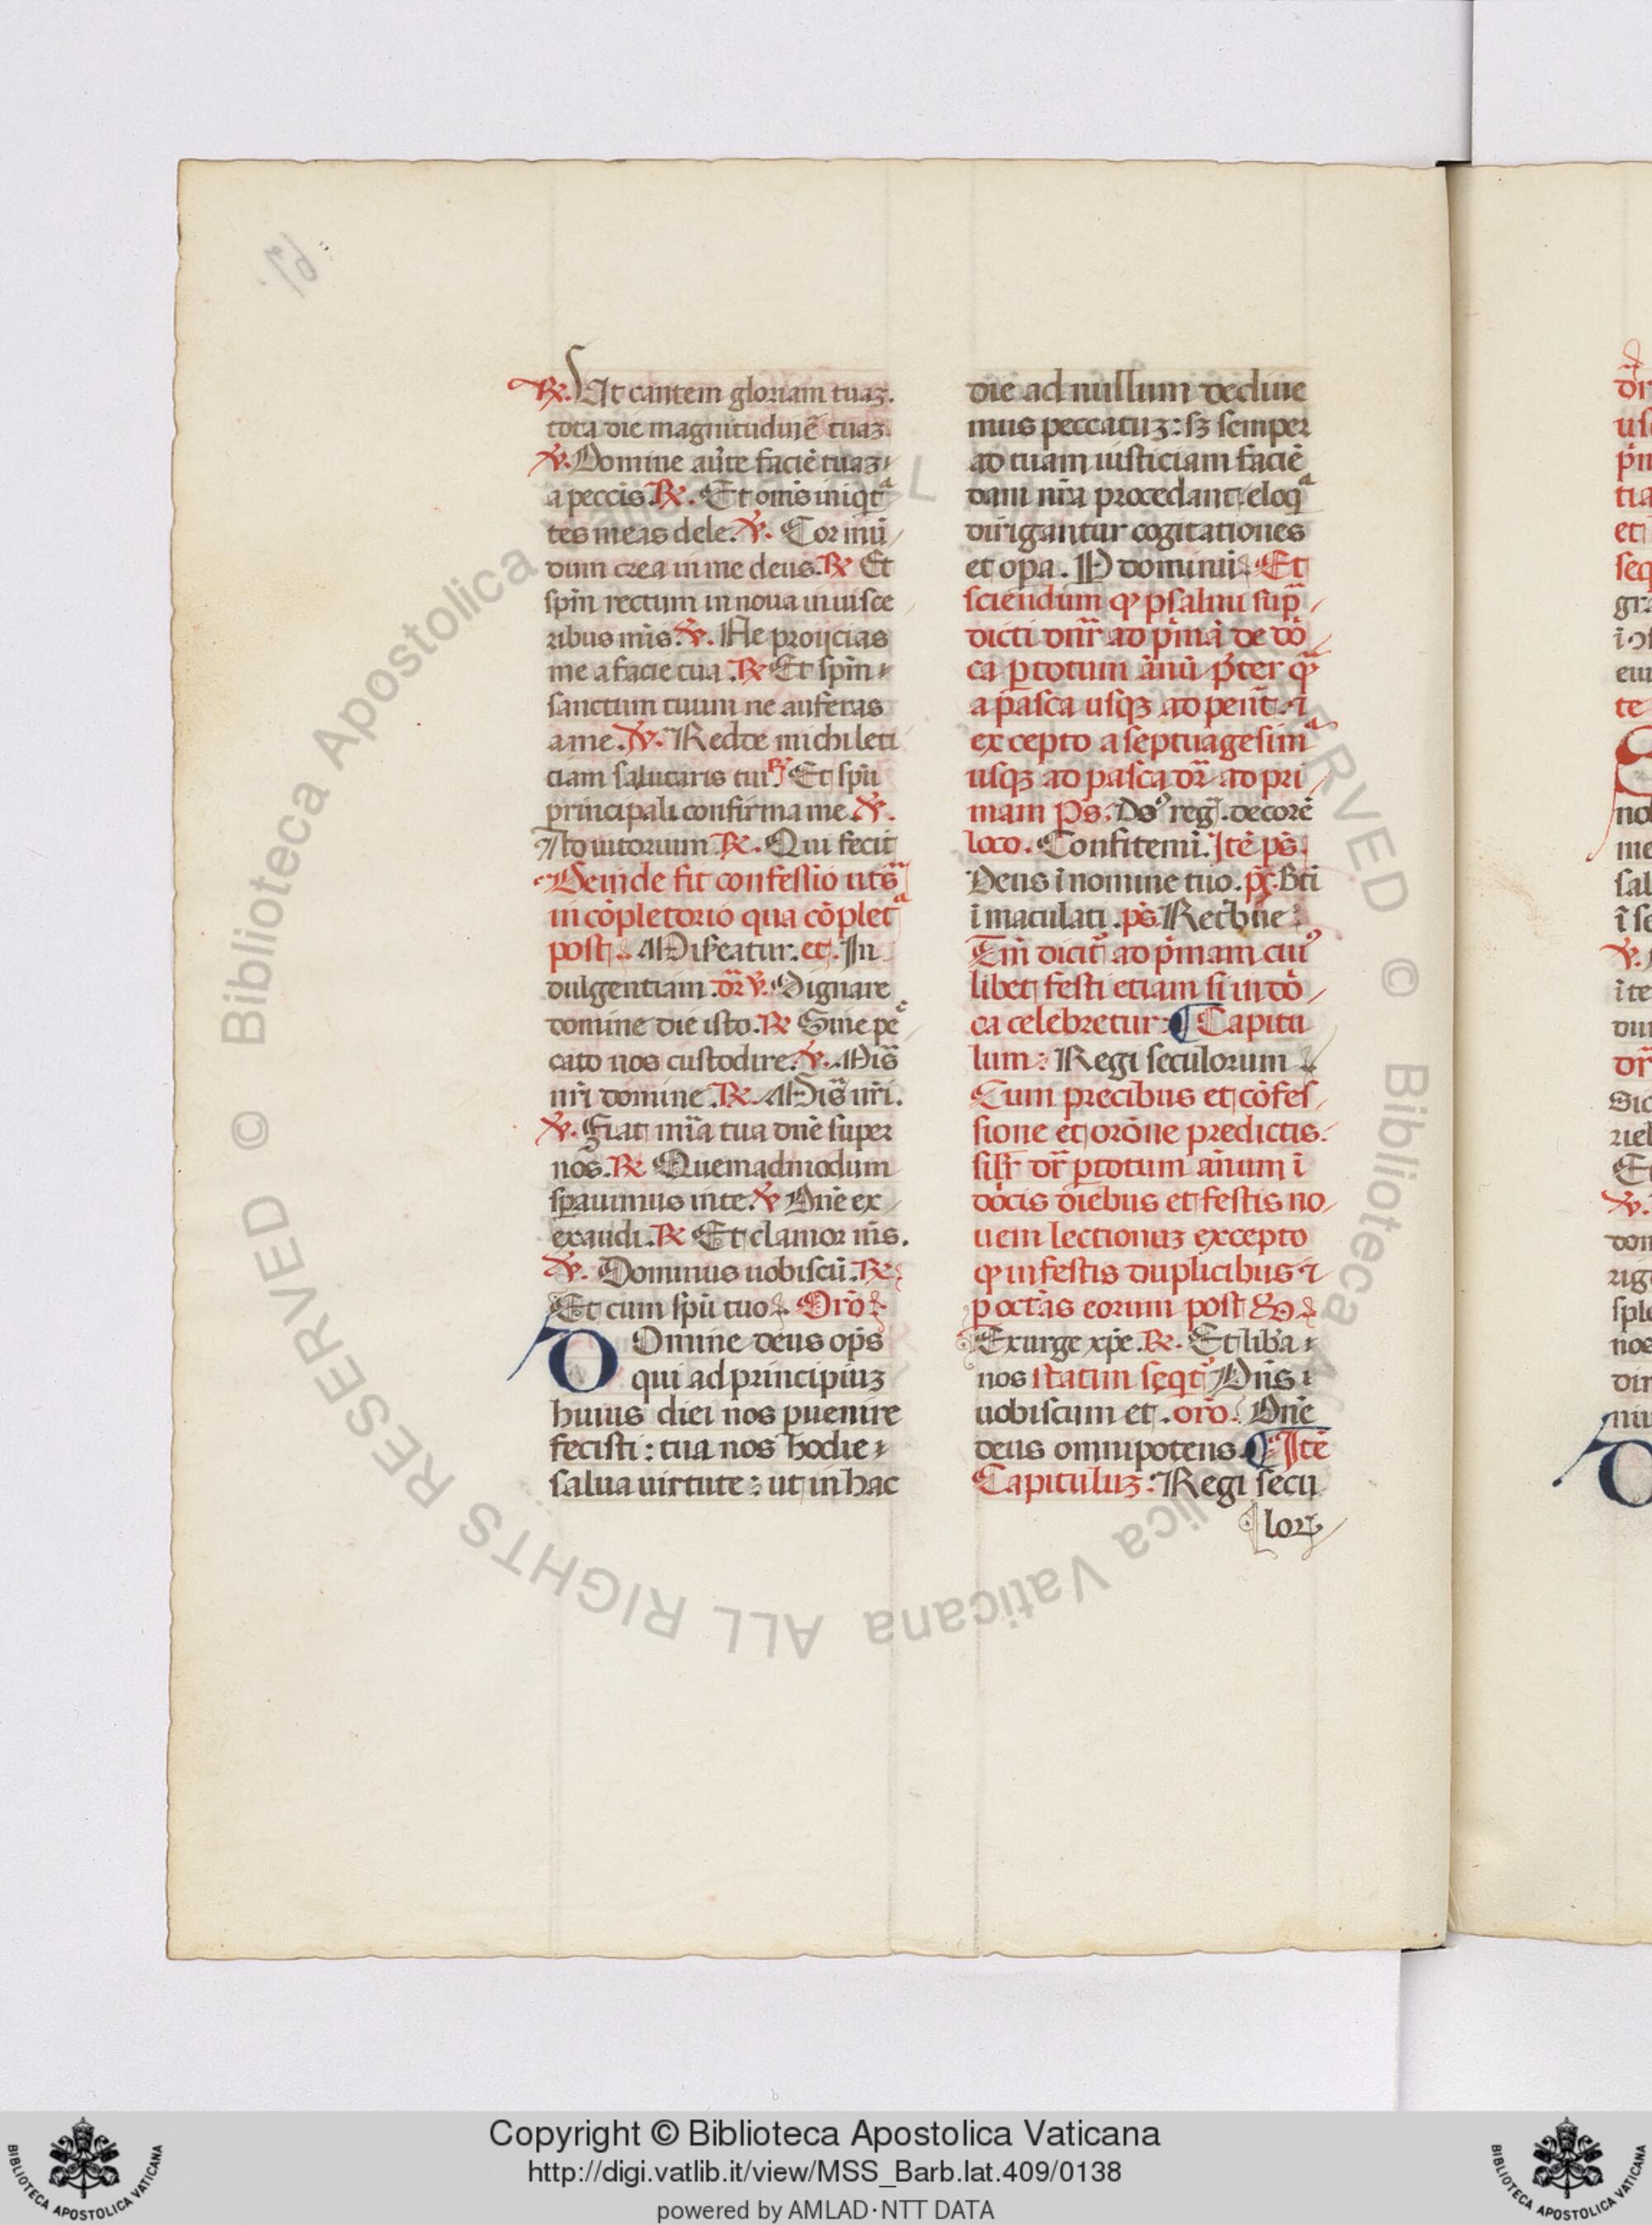 ℟. Ut cantem gloriam tuaȝ.
tota die magnitudinē tuaȝ.
℣. Domine aūte faciē tuaȝ
a peccīs. ℟. Et omīs iniqͣt
tes meas dele. ℣. Cor mū
dum crea in me deus. ℟ Et
spīn rectum innoua in uisce
ribus mīs. ℣. Ne proijcias
me a facie tua. ℟ Et spīn
sanctum tuum ne auferas
a me. ℣. Redde michi leti
ciam salutaris tui. ℟ Et spū
principali confirma me. ℣.
Adiutorium. ℟. Qui fecit
Deinde fit confessio ut sͣ
in cōpletorio qua cōpletͣ
post. Misēatur. et. In
dulgentiam. dr̄ ℣. Dignare
domine die isto. ℟ Sine pcͨ
cato nos custodire. ℣. Mis̄
nr̄i domine. ℟. Mis̄ nr̄i.
℣. Fiat mīa tua dnē super
nos. ℟ Quemadmodum
sperauimus in te. ℣ Dnē ex
exaudi. ℟ Et clamor mīs.
℣. Dominus uobiscū. ℟.
Et cum spū tuo. Orō.
Domine deus op̄s
qui ad principiuȝ
huius diei nos puenire
fecisti: tua nos hodie
salua uirtute: ut in hac
die ad nullum decline
mus peccatuȝ: sȝ semper
ad tuam iusticiam faciē
dam nr̄a procedant eloqͣ
dirigantur cogitationes
et opa. P dominū. Et
sciendum qp psalmi sup̄
dicti dnr̄ ad pīmā de dō
ca p totum ānū p̄ter qp
a pasca usqȝ ad pent̄. ⁊
excepto a septuagesimͣ
usqȝ ad pasca dr̄ ad pri
mam Ps. Dos̄ reḡ. decorē
loco. Confitemī. Itē ps̄.
Deus ī nomine tuo. ps̄. Bt̄i
īmaculati. ps̄. Retͥbūe
Tm̄ dicit᷑ ad pīmam cui᷒
libet festi etiam si in dō
ca celebretur: ¶ Capitu
lum: Regi seculorum
Cum precibus et cōfes
sione et orōne predictis.
silr̄ dr̄ p totum ānum ī
dōcis diebus et festis no
uem lectionuȝ excepto
qp in festis duplicibus ⁊
p octās eorum post
Exurge xpē. ℟. Et libā
nos statim seqt᷑ Dn̄s
uobiscum et. orō. Dnē
deus omnipotens. ¶ Itē
Capituluȝ: Regi secu
loꝝ
Copyright © Biblioteca Apostolica Vaticana
http://digi.vatlib.it/view/MSS_Barb.lat.409/0138
powered by AMLAD·NTT DATA